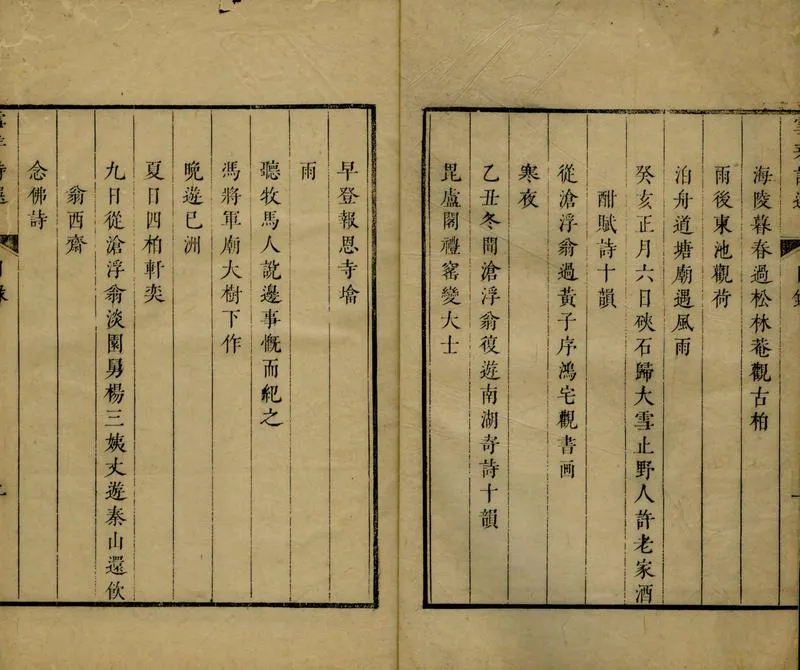 海陵暮春過松林菴觀古柏
雨後東池觀荷
泊舟道塘廟遇風雨
癸亥正月六日硤石歸大雪止野人許老家酒
酣賦詩十韻
從滄浮翁過黃子序鴻宅觀書画
寒夜
乙丑冬間滄浮翁復遊南湖寄詩十韻
毘盧閣禮窑變大士
早登報恩寺墖
雨
聽牧馬人說邊事慨而紀之
馮將軍廟大樹下作
晚遊巳洲
夏日四柏軒奕
九日從滄浮翁淡園舅楊三姨丈遊泰山還飲
翁西齋
念佛詩